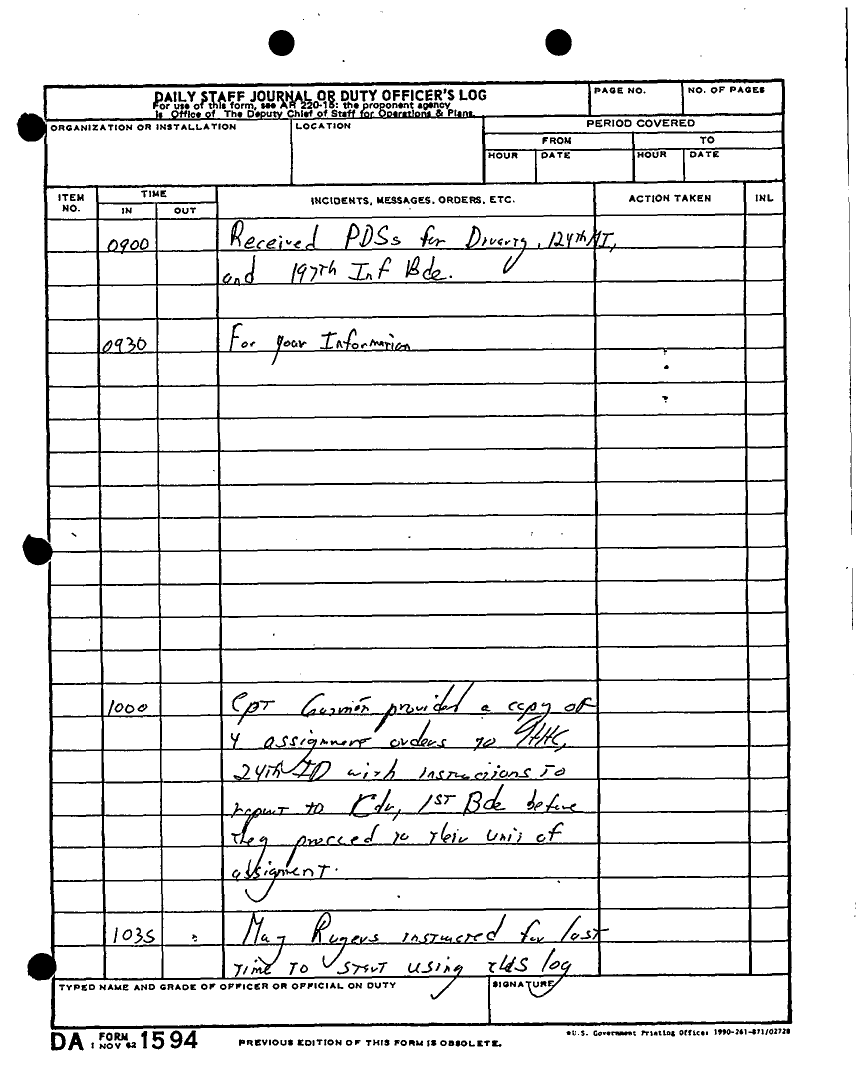 DAILY STAFF JOURNAL OR DUTY OFFICER'S LOG
For use of this form, see AR 220-15; the proponent agency
is Office of The Deputy Chief of Staff for Operations & Plans.
PAGE NO.
NO. OF PAGES
ORGANIZATION OR INSTALLATION
LOCATION
PERIOD COVERED
FROM
TO
HOUR
DATE
HOUR
DATE
ITEM NO.
TIME
IN
OUT
INCIDENTS, MESSAGES, ORDERS, ETC.
ACTION TAKEN
INL
0900 Received PDSs for Divarty, 124th MI,
and 197th Inf Bde.
0930 For your Information
1000 Cpt Guzmán provided a copy of
4 assignment orders to HHC,
24th ID with instructions to
report to Cdr, 1st Bde before
they proceed to their unit of
assigment.
1035 Maj Rogers instructed for last
time to start using this log
TYPED NAME AND GRADE OF OFFICER OR OFFICIAL ON DUTY
SIGNATURE
DA FORM 1 NOV 62 1594
PREVIOUS EDITION OF THIS FORM IS OBSOLETE.
*U.S. Government Printing Office: 1990-261-871/02728